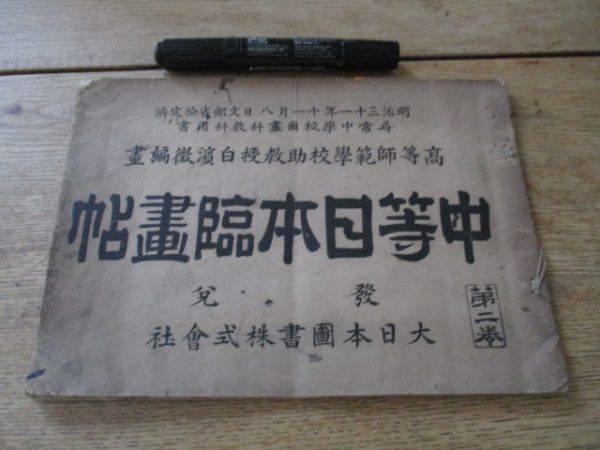 明治三十一年十一月八日文部省檢定濟
尋常中學校圖畫科教科用書
高等師範學校助教授白濱徵編畫
中等日本臨畫帖
第二卷
發兌
大日本圖書株式會社